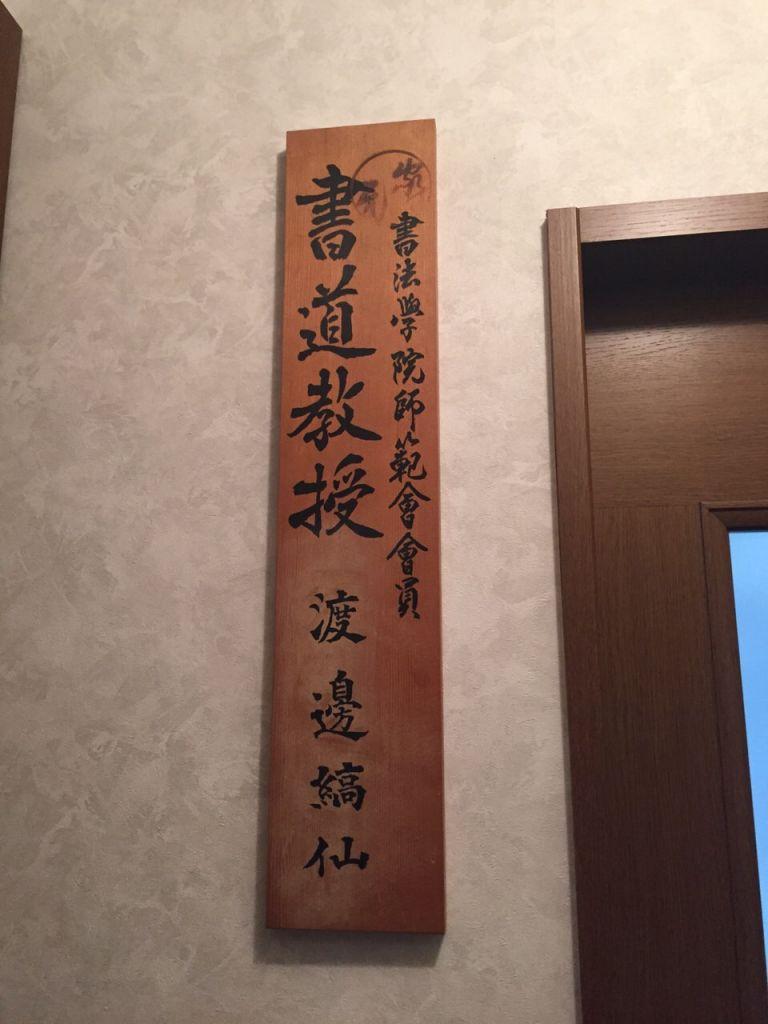 書法學院師範會會員
書道教授 渡邊縞仙